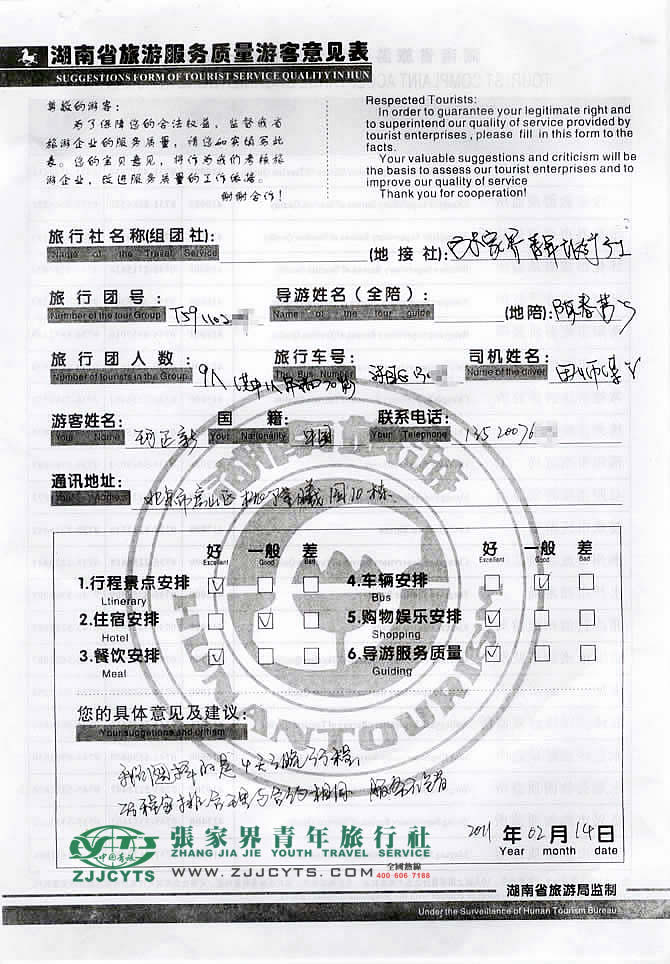 湖南省旅游服务质量游客意见表
SUGGESTIONS FORM OF TOURIST SERVICE QUALITY IN HUN
尊敬的游客：
为了保障您的合法权益，监督我省
旅游企业的服务质量，请您如实填写此
表。您的宝贝意见，将作为我们考核旅
游企业，改进服务质量的工作依据。
谢谢合作！
Respected Tourists:
In order to guarantee your legitimate right and
to superintend our quality of service provided by
tourist enterprises , please fill in this form to the
facts.
Your valuable suggestions and criticism will be
the basis to assess our tourist enterprises and to
improve our quality of service
Thank you for cooperation!
旅行社名称(组团社):
Name of the Travel Service
(地 接 社):张家界青年旅行社
旅 行 团 号：
Number of the tour Group
导游姓名（全陪）：
Name of the tour guide
(地陪:
旅 行 团 人 数 ：
Number of tourists in the Group
9人
旅行车号：
The Bus Number
司机姓名：
Name of the driver
田师傅
游客姓名:
Your Name
国 籍:
Your Nationality
中国
联系电话:
Your Telephone
13520076
通讯地址:
Your Address
北京市房山区
园10栋
好 一般 差
Excellent Good Bad
好 一般 差
Excellent Good Bad
1.行程景点安排
Ltinerary
4.车辆安排
Bus
2.住宿安排
Hotel
5.购物娱乐安排
Shopping
3.餐饮安排
Meal
6.导游服务质量
Guiding
HUNANTOURISM
您的具体意见及建议:
Your suggestions and critism
我们选择的是4天3晚行程，
行程安排合理与合约相同 服务
2011 年 02 月 14 日
Year month date
CYTS
中国青旅
ZJJCYTS
張家界青年旅行社
ZHANG JIA JIE YOUTH TRAVEL SERVICE
WWW.ZJJCYTS.COM
全國熱線
400 606 7188
湖南省旅游局监制
Under the Surveillance of Hunan Tourism Bureau